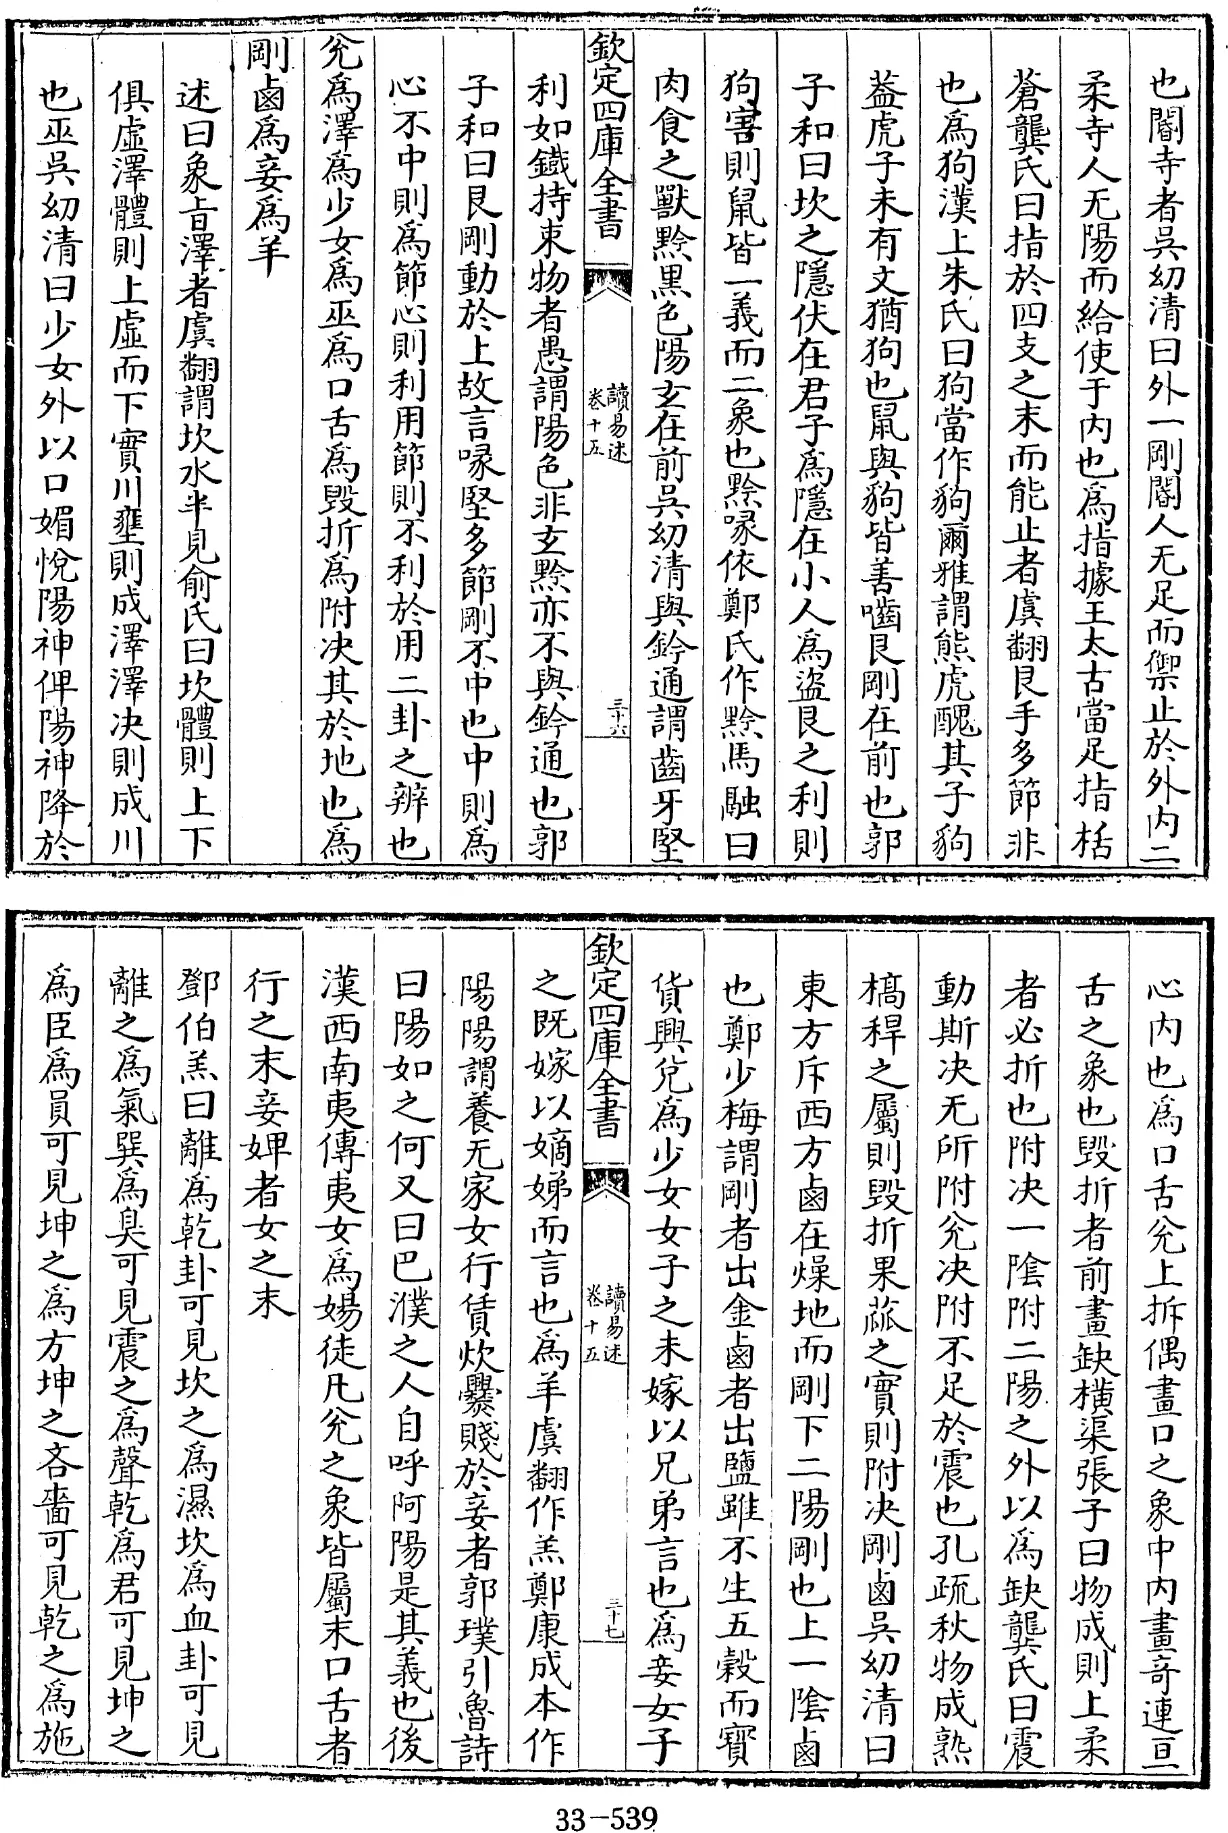 也閽寺者吳幼清曰外一剛閽人无足而禦止於外内二
柔寺人无陽而給使于内也為指據王太古當足指栝
蒼龔氏曰指於四支之末而能止者虞翻艮手多節非
也為狗漢上朱氏曰狗當作豿爾雅謂熊虎醜其子豿
蓋虎子未有文猶狗也鼠與豿皆善嚙艮剛在前也郭
子和曰坎之隱伏在君子為隱在小人為盜艮之利則
狗害則鼠皆一義而二象也黔喙依鄭氏作黔馬融曰
肉食之獸黔黒色陽𤣥在前吳幼清與鈐通謂齒牙堅
欽定四庫全書
讀易述
卷十五
三十六
利如鐡持束物者愚謂陽色非𤣥黔亦不與鈐通也郭
子和曰艮剛動於上故言喙堅多節剛不中也中則為
心不中則為節心則利用節則不利於用二卦之辨也
兊為澤為少女為巫為口舌為毁折為附决其於地也為
剛鹵為妾為羊
述曰象旨澤者虞翻謂坎水半見俞氏曰坎體則上下
俱虛澤體則上虛而下實川壅則成澤澤决則成川
也巫吳幼清曰少女外以口媚悅陽神俾陽神降於
心内也為口舌兊上拆偶畫口之象中内畫竒連亘
舌之象也毁折者前畫缺橫渠張子曰物成則上柔
者必折也附决一隂附二陽之外以為缺龔氏曰震
動斯决无所附兊决附不足於震也孔疏秋物成熟
槁稈之屬則毁折果蓏之實則附决剛鹵吳幼清曰
東方斥西方鹵在燥地而剛下二陽剛也上一隂鹵
也鄭少梅謂剛者出金鹵者出鹽雖不生五穀而寳
貨興兊為少女女子之未嫁以兄弟言也為妾女子
欽定四庫全書
讀易述
卷十五
三十七
之既嫁以嫡娣而言也為羊虞翻作羔鄭康成本作
陽陽謂養无家女行賃炊爨賤於妾者郭璞引魯詩
曰陽如之何又曰巴濮之人自呼阿陽是其義也後
漢西南夷傳夷女為婸徒凡兊之象皆屬末口舌者
行之末妾婢者女之末
鄧伯羔曰離為乾卦可見坎之為濕坎為血卦可見
離之為氣巽為臭可見震之為聲乾為君可見坤之
為臣為員可見坤之為方坤之吝嗇可見乾之為施
33-539